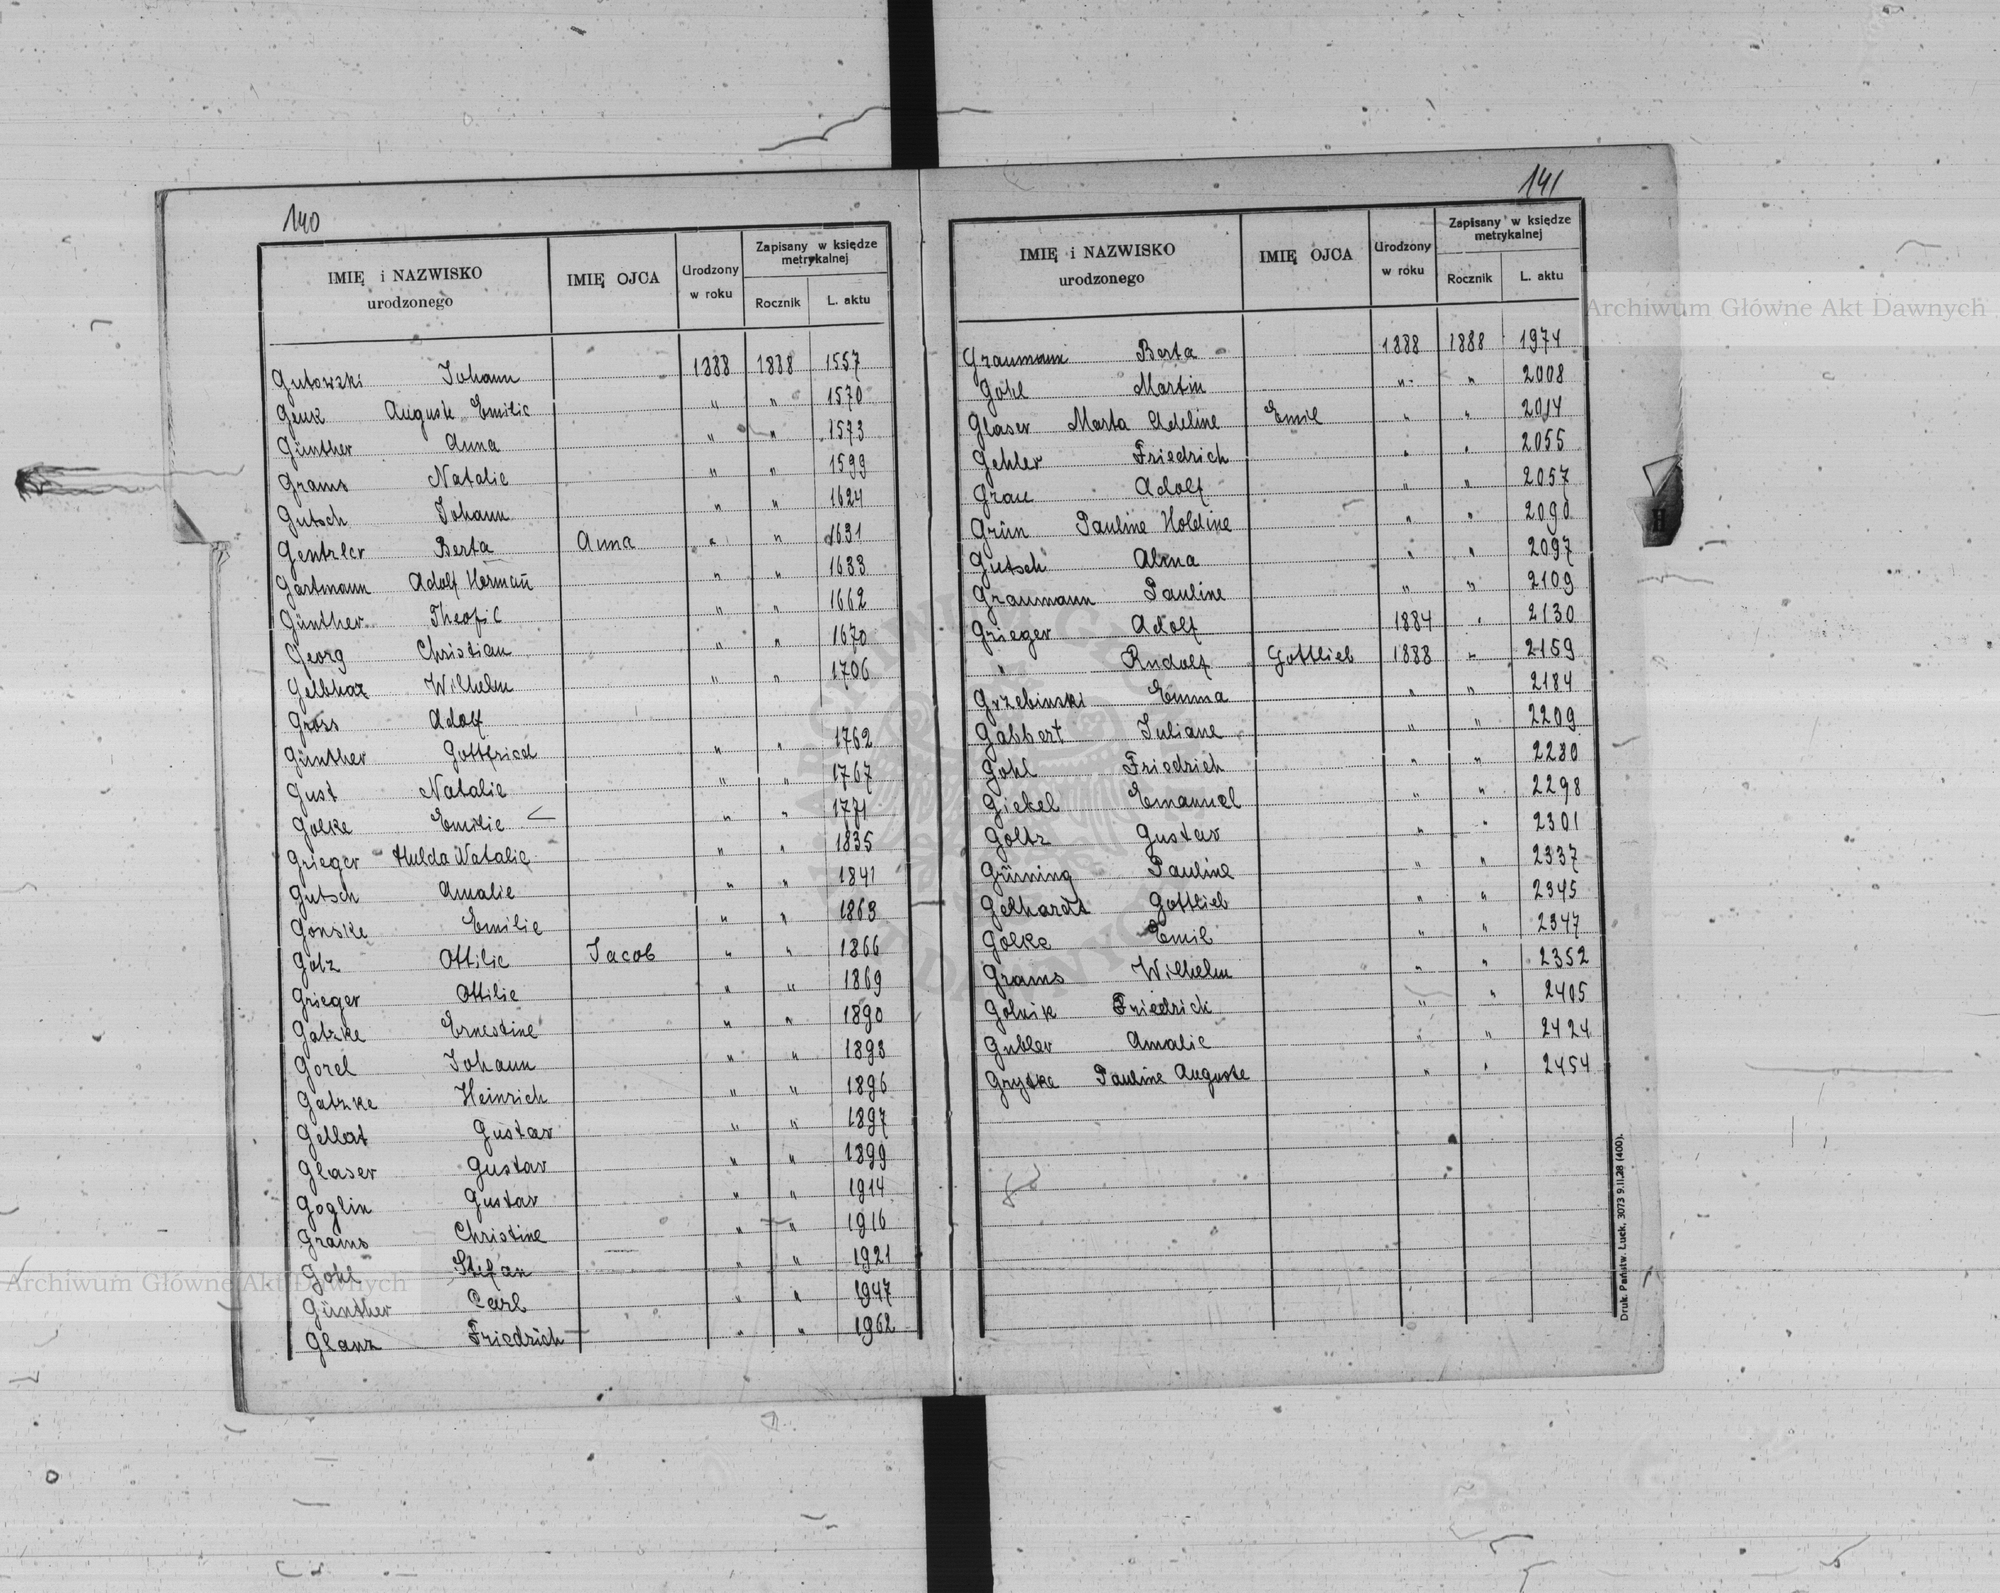 140
IMIĘ i NAZWISKO urodzonego IMIĘ OJCA Urodzony w roku Zapisany w księdze metrykalnej Rocznik L. aktu
Gutowski Johann 1888 1888 1557
Genk Auguste Emilie " " 1570
Günther Anna " " 1573
Grams Natalie " " 1599
Gutsch Johann " " 1624
Gentzler Berta Anna " " 1631
Gartmann Adolf Hermañ " " 1633
Günther Theofil " " 1662
Georg Christian " " 1670
Gelbhaz Wilhelm " " 1706
Gross Adolf
Günther Gottfried " " 1762
Gust Natalie " " 1767
Golke Emilie " " 1771
Grieger Hulda Natalie " " 1835
Gutsch Amalie " " 1841
Gonske Emilie " " 1863
Golz Ottilie Jacob " " 1866
Grieger Ottilie " " 1869
Gatzke Ernestine " " 1890
Gorel Johann " " 1893
Gatzke Heinrich " " 1896
Gellat Gustav " " 1897
Glaser Gustav " " 1899
Goglin Gustav " " 1914
Grams Christine " " 1916
Gohl Stefan " " 1921
Günther Carl " " 1947
Glanz Friedrich " " 1962
141
IMIĘ i NAZWISKO urodzonego IMIĘ OJCA Urodzony w roku Zapisany w księdze metrykalnej Rocznik L. aktu
Graumann Berta 1888 1888 1974
Göhl Martin " " 2008
Glaser Marta Adeline Emil " " 2014
Gehler Friedrich " " 2055
Grau Adolf " " 2057
Grün Pauline Holdine " " 2090
Gutsch Alma " " 2097
Graumann Pauline " " 2109
Grieger Adolf 1884 " 2130
" Rudolf Gottlieb 1888 " 2159
Grzebinski Emma " " 2184
Gabbert Juliane " " 2209
Gohl Friedrich " " 2280
Giekel Emanuel " " 2298
Goltz Gustav " " 2301
Grüning Pauline " " 2337
Gelhardt Gottlieb " " 2345
Golke Emil " " 2347
Grams Wilhelm " " 2352
Golnik Friedrich " " 2405
Gubler Amalie " " 2424
Gryske Pauline Auguste " " 2454
Druk. Państw. Łuck. 3073 9.II.28 (400).
Archiwum Główne Akt Dawnych
Archiwum Główne Akt Dawnych